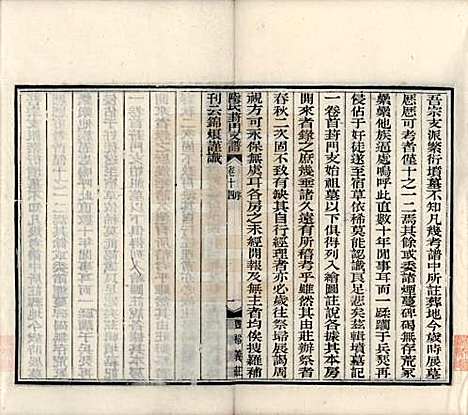 吾宗支派繁衍墳墓不知凡幾考譜中所註葬地今歲時展墓
歷歷可考者僅十之一二焉其餘或委諸煙蔓碑碣無存荒冢
纍纍他族逼處嗚呼此直數十年間事耳而一蹂躪于兵燹再
侵佔于奸徒遂至宿草依稀莫能認識良足慨焉茲輯墳墓記
一卷首葑門支始祖墓以下俱得列入繪圖註說各據其本房
開來者錄之庶幾垂諸久遠有所稽考乎雖然其由莊辦祭者
春秋二次固不致有缺其自行經理者亦必歲往祭埽展謁周
視方可永保無虞耳各房之未經開報及無主者均俟搜羅補
刊云錦熉謹識
陸氏葑門支譜
卷十四
一
豐裕義莊